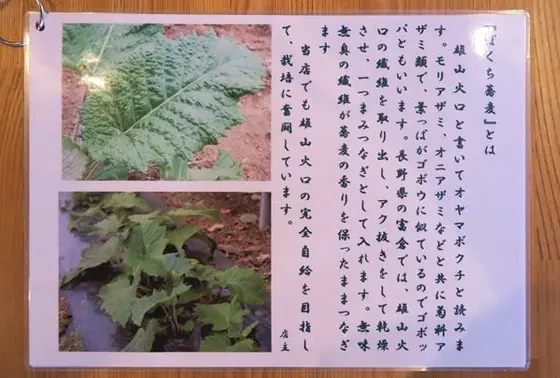 『ぼくち蕎麦』とは
雄山火口と書いてオヤマボクチと読みま
す。モリアザミ、オニアザミなどと共に菊科ア
ザミ類で、葉っぱがゴボウに似ているのでゴボッ
パともいいます。長野県の富倉では、雄山火
口の繊維を取り出し、アク抜きをして乾燥
させ、一つまみつなぎとして入れます。無味
無臭の繊維が蕎麦の香りを保ったままつなぎ
ます
当店でも雄山火口の完全自給を目指し
て、栽培に奮闘しています。
店主